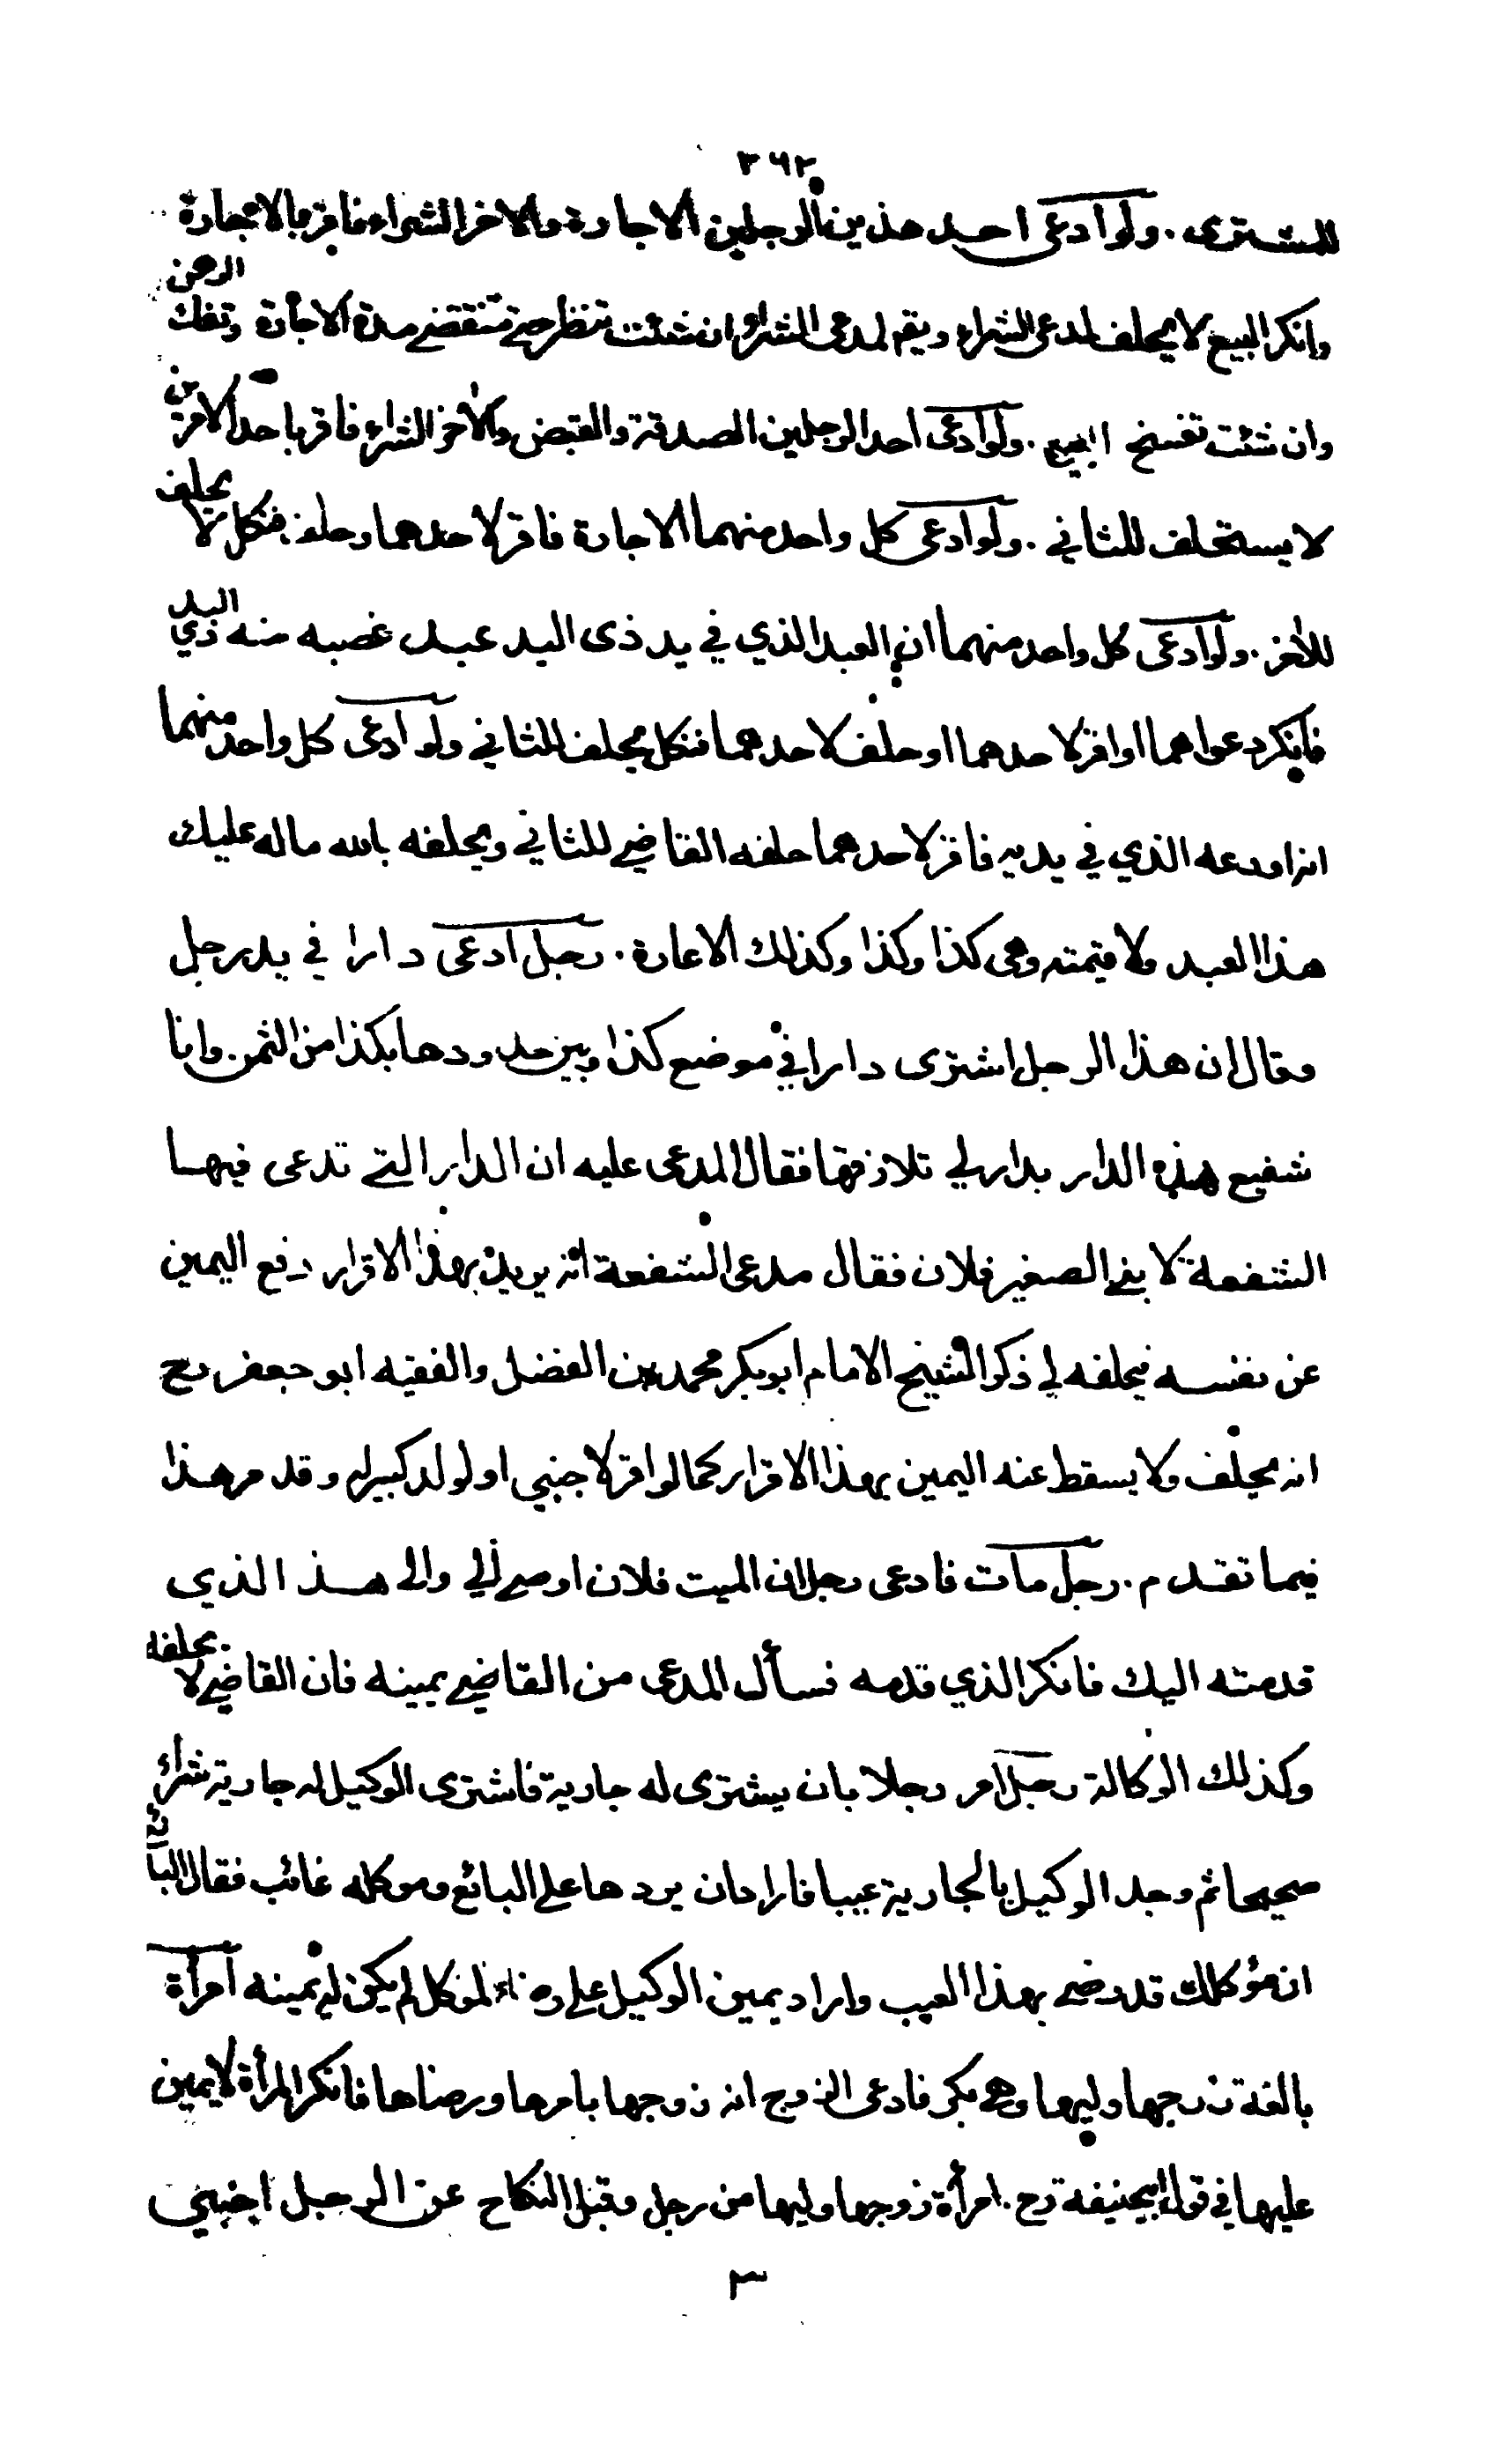 ٣٦٢
للمشترى . ولو ادعى احد هذين الرجلين الاجارة والاخر الشراء فاقر بالاجارة
وانكر البيع لا يحلف لمدعى الشراء ويقر لمدعى الشراء ان شئت تنظر حتى تنقضى مدة الاجارة وتفك الرهن
وان شئت تفسخ البيع . ولو ادعى احد الرجلين الصدقة والقبض والاخر الشراء فاقر باحد الامرين
لا يستحلف للثاني . ولو ادعى كل واحد منهما الاجارة فاقر لاحدهما وحلف فنكل لا يحلف
للاخر . ولو ادعى كل واحد منهما ان العبد الذي في يد ذى اليد عبد غصبه منه ذي اليد
فانكر دعواهما او اقر لاحدهما او حلف لاحدهما فنكل يحلف للثاني ولو ادعى كل واحد منهما
انه اودعه الذي في يديه فاقر لاحدهما حلفه القاضي للثاني ويحلفه بالله ماله عليك
هذا العبد ولا قيمته وهى كذا وكذا وكذلك الاعارة . رجل ادعى دارا في يد رجل
وقال ان هذا الرجل اشترى دارا في موضع كذا وبين حدودها بكذا من الثمن وانا
شفيع هذه الدار بدار لي تلازقها فقال المدعى عليه ان الدار التي تدعى فيها
الشفعة لابني الصغير فلان فقال مدعى الشفعة انه يريد بهذا الاقرار دفع اليمين
عن نفسه فيحلفه لي ذكر الشيخ الامام ابو بكر محمد بن الفضل والفقيه ابو جعفر رح
انه يحلف ولا يسقط عنه اليمين بهذا الاقرار كما لو اقر لاجنبي او لولد كبير له وقد مر هذا
فيما تقدم . رجل مات فادعى رجل ان الميت فلان اوصى الي والى هذا الذي
قدمته اليك فانكر الذي قدمه فسأل المدعى من القاضي يمينه فان القاضي لا يحلفه
وكذلك الوكالة رجل امر رجلا بان يشترى له جارية فاشترى الوكيل له جارية شراء
صحيحا ثم وجد الوكيل بالجارية عيبا فاراد ان يردها على البائع وموكله غائب فقال البائع
ان موكلك قد رضي بهذا العيب واراد يمين الوكيل على رضاء الموكل لم يكن له يمينه امرأة
بالغة زوجها وليها وهي بكر فادعى الزوج انه زوجها بامرها ورضاها فانكر المرأة لا يمين
عليها في قول ابيحنيفة رح . امرأة زوجها وليها من رجل وقبل النكاح عن الرجل اجنبي
٣